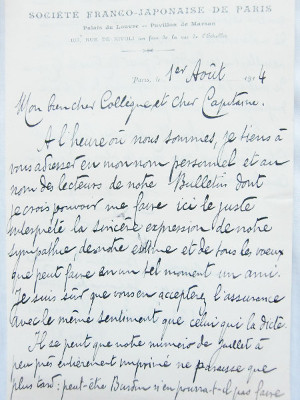 SOCIÉTÉ FRANCO-JAPONAISE DE PARIS
Palais du Louvre — Pavillon de Marsan
RUE DE RIVOLI
Paris, 1er Août 1914
Mon bien cher Collègue et cher Capitaine.
A l'heure où nous sommes, je tiens à
vous adresser en mon nom personnel et au
nom des lecteurs de notre Bulletin dont
je crois pouvoir me faire ici le juste
interprète la sincère expression de notre
sympathie, de notre estime et de tous les vœux
que peut faire en un tel moment un ami.
Je suis sûr que vous en accepterez l'assurance
avec le même sentiment que celui qui la dicte.
Il se peut que notre numéro de Juillet à
peu près entièrement imprimé ne paraisse que
plus tard : peut-être n'en pourra-t-il pas faire